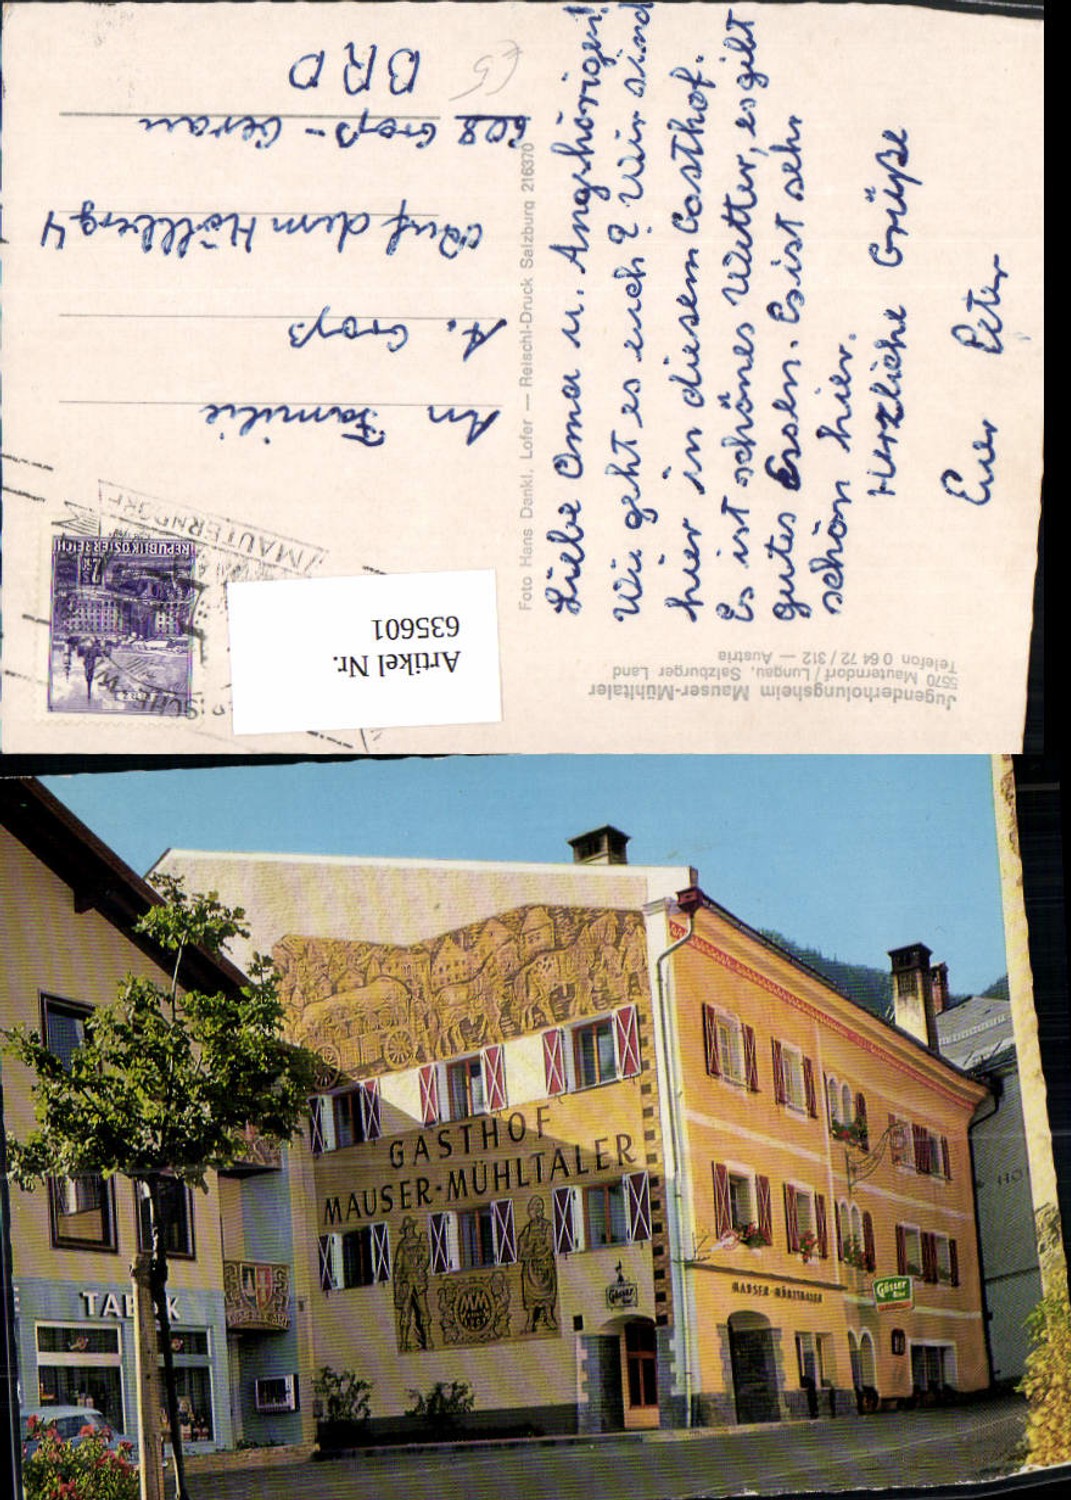 Liebe Oma u. Angehörigen!
Wie geht es euch? Wir sind
hier in diesem Gasthof.
Es ist schönes Wetter, es gibt
gutes Essen. Es ist sehr
schön hier.
Herzliche Grüße
Euer Peter
An Familie
A. Groß
Auf dem Höllberg 4
608 Groß-Gerau
BRD
Foto Hans Dankl, Lofer — Reischl-Druck Salzburg 216370
Jugenderholungsheim Mauser-Mühltaler
5570 Mauterndorf / Lungau, Salzburger Land
Telefon 0 64 72 / 312 — Austria
REPUBLIK ÖSTERREICH
MAUTERNDORF
Artikel Nr.
635601
GASTHOF
MAUSER-MÜHLTALER
MAUSER-MÜHLTALER
Gösser
Bier
Gösser
TABAK
HO